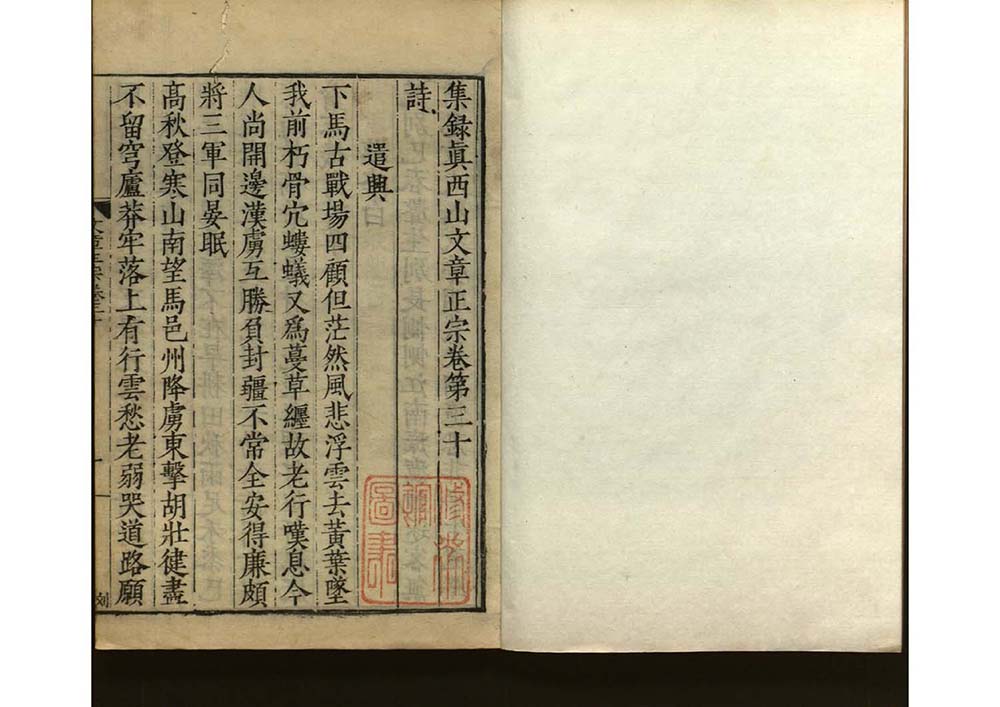 集録眞西山文章正宗卷第三十
詩
遣興
下馬古戰場四顧但茫然風悲浮雲去黃葉墜
我前朽骨穴螻蟻又爲蔓草纏故老行嘆息今
人尚開邊漢虜互勝負封疆不常全安得廉頗
將三軍同晏眠
高秋登寒山南望馬邑州降虜東擊胡壯健盡
不留穹廬莽牢落上有行雲愁老弱哭道路願